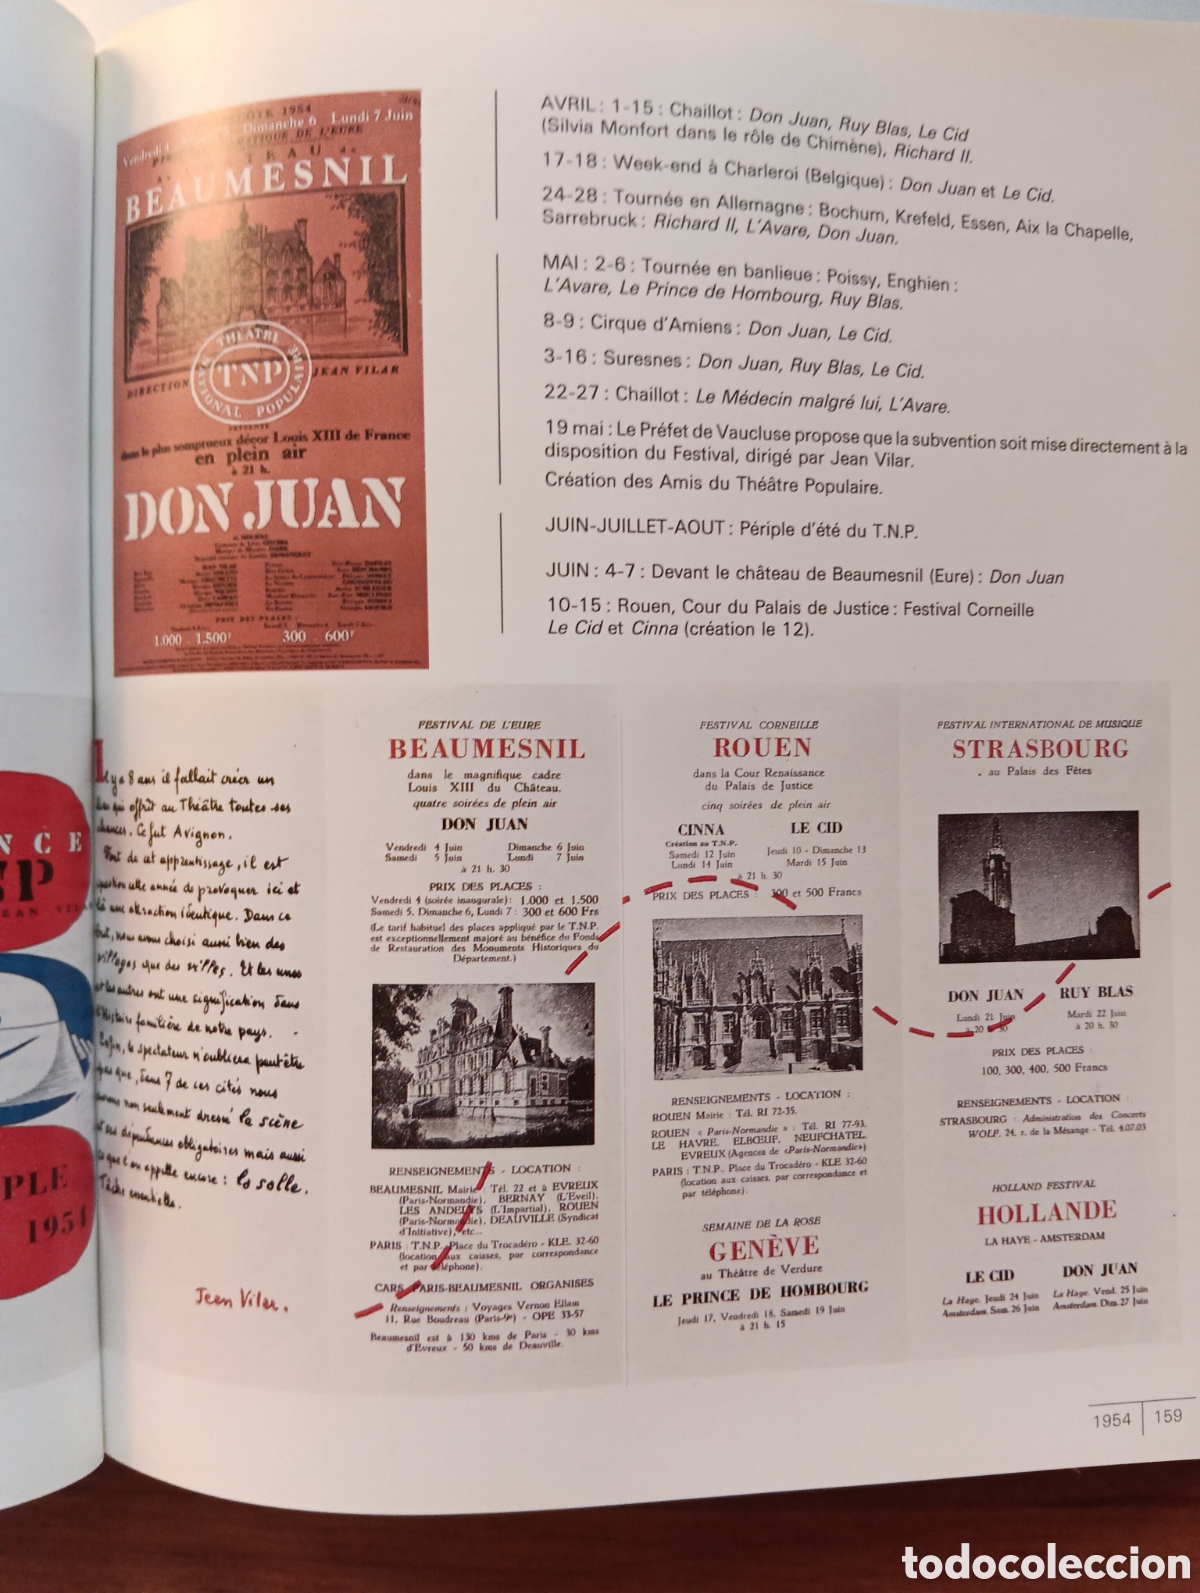 NCE
NP
JEAN VILAR
PLE
1954
1954
Vendredi 4
Dimanche 6 Lundi 7 Juin
DE L'EURE
BEAUMESNIL
THEATRE NATIONAL POPULAIRE
TNP
DIRECTION JEAN VILAR
PRESENTE
dans le plus somptueux décor Louis XIII de France
en plein air
à 21 h.
DON JUAN
PRIX DES PLACES :
1.000 - 1.500F 300 - 600F
AVRIL : 1-15 : Chaillot : Don Juan, Ruy Blas, Le Cid
(Silvia Monfort dans le rôle de Chimène), Richard II.
17-18 : Week-end à Charleroi (Belgique) : Don Juan et Le Cid.
24-28 : Tournée en Allemagne : Bochum, Krefeld, Essen, Aix la Chapelle,
Sarrebruck : Richard II, L'Avare, Don Juan.
MAI : 2-6 : Tournée en banlieue : Poissy, Enghien :
L'Avare, Le Prince de Hombourg, Ruy Blas.
8-9 : Cirque d'Amiens : Don Juan, Le Cid.
3-16 : Suresnes : Don Juan, Ruy Blas, Le Cid.
22-27 : Chaillot : Le Médecin malgré lui, L'Avare.
19 mai : Le Préfet de Vaucluse propose que la subvention soit mise directement à la
disposition du Festival, dirigé par Jean Vilar.
Création des Amis du Théâtre Populaire.
JUIN-JUILLET-AOUT : Périple d'été du T.N.P.
JUIN : 4-7 : Devant le château de Beaumesnil (Eure) : Don Juan
10-15 : Rouen, Cour du Palais de Justice : Festival Corneille
Le Cid et Cinna (création le 12).
Il y a 8 ans il fallait créer un
lieu qui offrit au Théâtre toutes ses
chances. Ce fut Avignon.
Fort de cet apprentissage, il est
question cette année de provoquer ici et
là une attraction identique. Dans ce
but, nous avons choisi aussi bien des
villages que des villes. Et les unes
et les autres ont une signification dans
l'histoire familière de notre pays.
Enfin, le spectateur n'oubliera peut-être
pas que, dans 7 de ces cités nous
aurons non seulement dressé la scène
et ses dépendances obligatoires mais aussi
ce que l'on appelle encore : la salle.
Tâche ensemble.
Jean Vilar.
FESTIVAL DE L'EURE
BEAUMESNIL
dans le magnifique cadre
Louis XIII du Château.
quatre soirées de plein air
DON JUAN
Vendredi 4 Juin Dimanche 6 Juin
Samedi 5 Juin Lundi 7 Juin
à 21 h. 30
PRIX DES PLACES :
Vendredi 4 (soirée inaugurale) : 1.000 et 1.500
Samedi 5, Dimanche 6, Lundi 7 : 300 et 600 Frs
(Le tarif habituel des places appliqué par le T.N.P.
est exceptionnellement majoré au bénéfice du Fonds
de Restauration des Monuments Historiques du
Département.)
RENSEIGNEMENTS - LOCATION :
BEAUMESNIL Mairie : Tél. 22 et à EVREUX
(Paris-Normandie), BERNAY (L'Eveil),
LES ANDELYS (L'Impartial), ROUEN
(Paris-Normandie), DEAUVILLE (Syndicat
d'Initiative), etc...
PARIS : T.N.P. Place du Trocadéro - KLE. 32-60
(location aux caisses, par correspondance
et par téléphone).
CARS PARIS-BEAUMESNIL ORGANISES
Renseignements : Voyages Vernon Ellam
11, Rue Boudreau (Paris-9e) - OPE 33-57
Beaumesnil est à 130 kms de Paris - 30 kms
d'Evreux - 50 kms de Deauville.
FESTIVAL CORNEILLE
ROUEN
dans la Cour Renaissance
du Palais de Justice
cinq soirées de plein air
CINNA LE CID
Création au T.N.P.
Samedi 12 Juin Jeudi 10 - Dimanche 13
Lundi 14 Juin Mardi 15 Juin
à 21 h. 30
PRIX DES PLACES : 300 et 500 Francs
RENSEIGNEMENTS - LOCATION :
ROUEN Mairie : Tél. RI 72-35.
ROUEN « Paris-Normandie » : Tél. RI 77-93.
LE HAVRE, ELBŒUF, NEUFCHATEL,
EVREUX (Agences de «Paris-Normandie»)
PARIS : T.N.P., Place du Trocadéro - KLE 32-60
(location aux caisses, par correspondance et
par téléphone).
SEMAINE DE LA ROSE
GENÈVE
au Théâtre de Verdure
LE PRINCE DE HOMBOURG
Jeudi 17, Vendredi 18, Samedi 19 Juin
à 21 h. 15
FESTIVAL INTERNATIONAL DE MUSIQUE
STRASBOURG
au Palais des Fêtes
DON JUAN RUY BLAS
Lundi 21 Juin Mardi 22 Juin
à 20 h. 30 à 20 h. 30
PRIX DES PLACES :
100, 300, 400, 500 Francs
RENSEIGNEMENTS - LOCATION :
STRASBOURG : Administration des Concerts
WOLF, 24, r. de la Mésange - Tél. 4.07.03
HOLLAND FESTIVAL
HOLLANDE
LA HAYE - AMSTERDAM
LE CID DON JUAN
La Haye, Jeudi 24 Juin La Haye, Vend. 25 Juin
Amsterdam, Sam. 26 Juin Amsterdam, Dim. 27 Juin
1954 159
todocoleccion